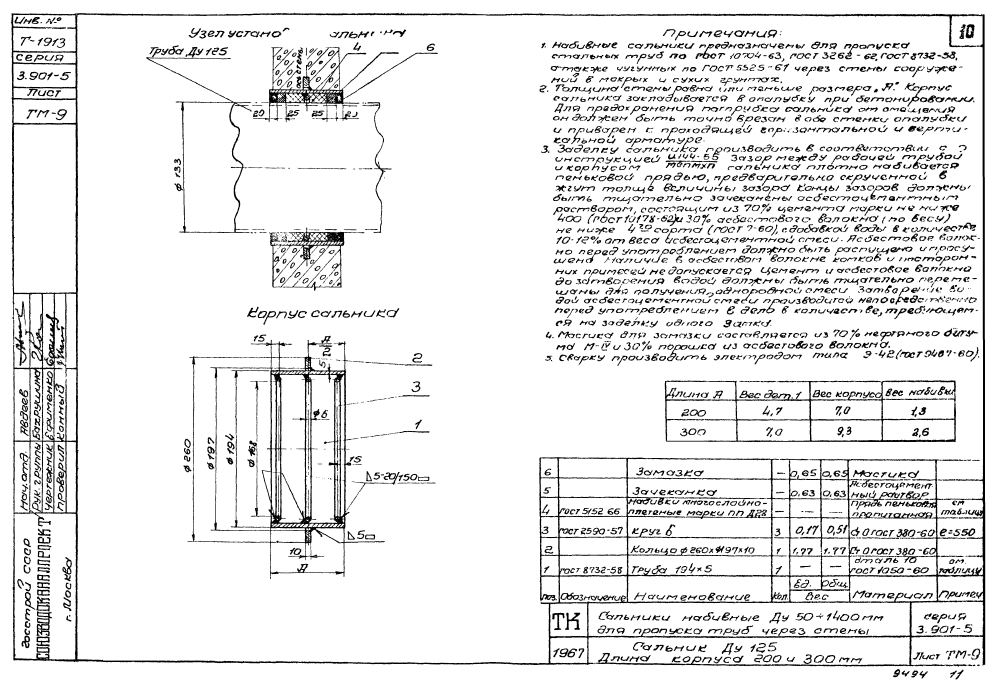 Инв. №
Т-1913
серия
3.901-5
Лист
ТМ-9
Нач. отд. Авдеев
Рук. группы Бахрушина
Чертежник Ефименко
проверил
Госстрой СССР
СОЮЗВОДОКАНАЛПРОЕКТ
г. Москва
Узел устано
Труба Ду 125
4
6
20
25
25
20
ф133
Корпус сальника
15
А
А/2
5
2
3
1
ф6
ф260
ф197
ф194
ф168
15
5-20/150
5
10
А
10
Примечания:
1. Набивные сальники предназначены для пропуска
стальных труб по ГОСТ 10704-63, ГОСТ 3262-62, ГОСТ 8732-58,
а также чугунных по ГОСТ 5525-61 через стены сооруже-
ний в мокрых и сухих грунтах.
2. Толщина стены равна или меньше размера „А". Корпус
сальника закладывается в опалубку при бетонировании.
Для предохранения патрубка сальника от смещения
он должен быть точно врезан в обе стенки опалубки
и приварен к проходящей горизонтальной и верти-
кальной арматуре.
3. Заделку сальника производить в соответствии с
инструкцией И144-55 Зазор между рабочей трубой
и корпусом сальника плотно набивается
пеньковой прядью, предварительно скрученной в
жгут толще величины зазора Концы зазоров должны
быть тщательно зачеканены асбестоцементным
раствором, состоящим из 70% цемента марки не ниже
400 (ГОСТ 10178-62) и 30% асбестового волокна (по весу)
не ниже 4го сорта (ГОСТ 7-60), с добавкой воды в количестве
10-12% от веса асбестоцементной смеси. Асбестовое волок-
но перед употреблением должно быть распущено и просу-
шено Наличие в асбестовом волокне комков и посторон-
них примесей не допускается Цемент и асбестовое волокно
до затворения водой должны быть тщательно переме-
шаны для получения однородной смеси Затворение во-
дой асбестоцементной смеси производится непосредственно
перед употреблением в дело в количестве, требующем-
ся на заделку одного замка.
4. Мастика для замазки составляется из 70% нефтяного биту-
ма М-IV и 30% порошка из асбестового волокна.
5. Сварку производить электродом типа Э-42 (ГОСТ 9467-60).
Длина А Вес дет. 1 Вес корпуса Вес набивки
200 4,7 7,0 1,3
300 7,0 9,3 2,6
6 Замазка — 0,65 0,65 Мастика
5 Зачеканка — 0,63 0,63 Асбестоцемент ный раствор
4 ГОСТ 5152-66 Набивки многослойно-плетеные марки ПП Д28 — — — прядь пеньковая пропитанная см. таблицу
3 ГОСТ 2590-57 Круг 6 3 0,17 0,51 Ст 0 ГОСТ 380-60 ℓ=550
2 Кольцо ф260хф197х10 1 1,77 1,77 Ст 0 ГОСТ 380-60
1 ГОСТ 8732-58 Труба 194×5 1 — — сталь 10 ГОСТ 1050-60 см. таблицу
поз. Обозначение Наименование Кол. Ед. Общ. Вес Материал Примеч
ТК
Сальники набивные Ду 50÷1400мм
для пропуска труб через стены
серия
3.901-5
1967
Сальник Ду 125
Длина корпуса 200 и 300 мм
Лист ТМ-9
9494 11